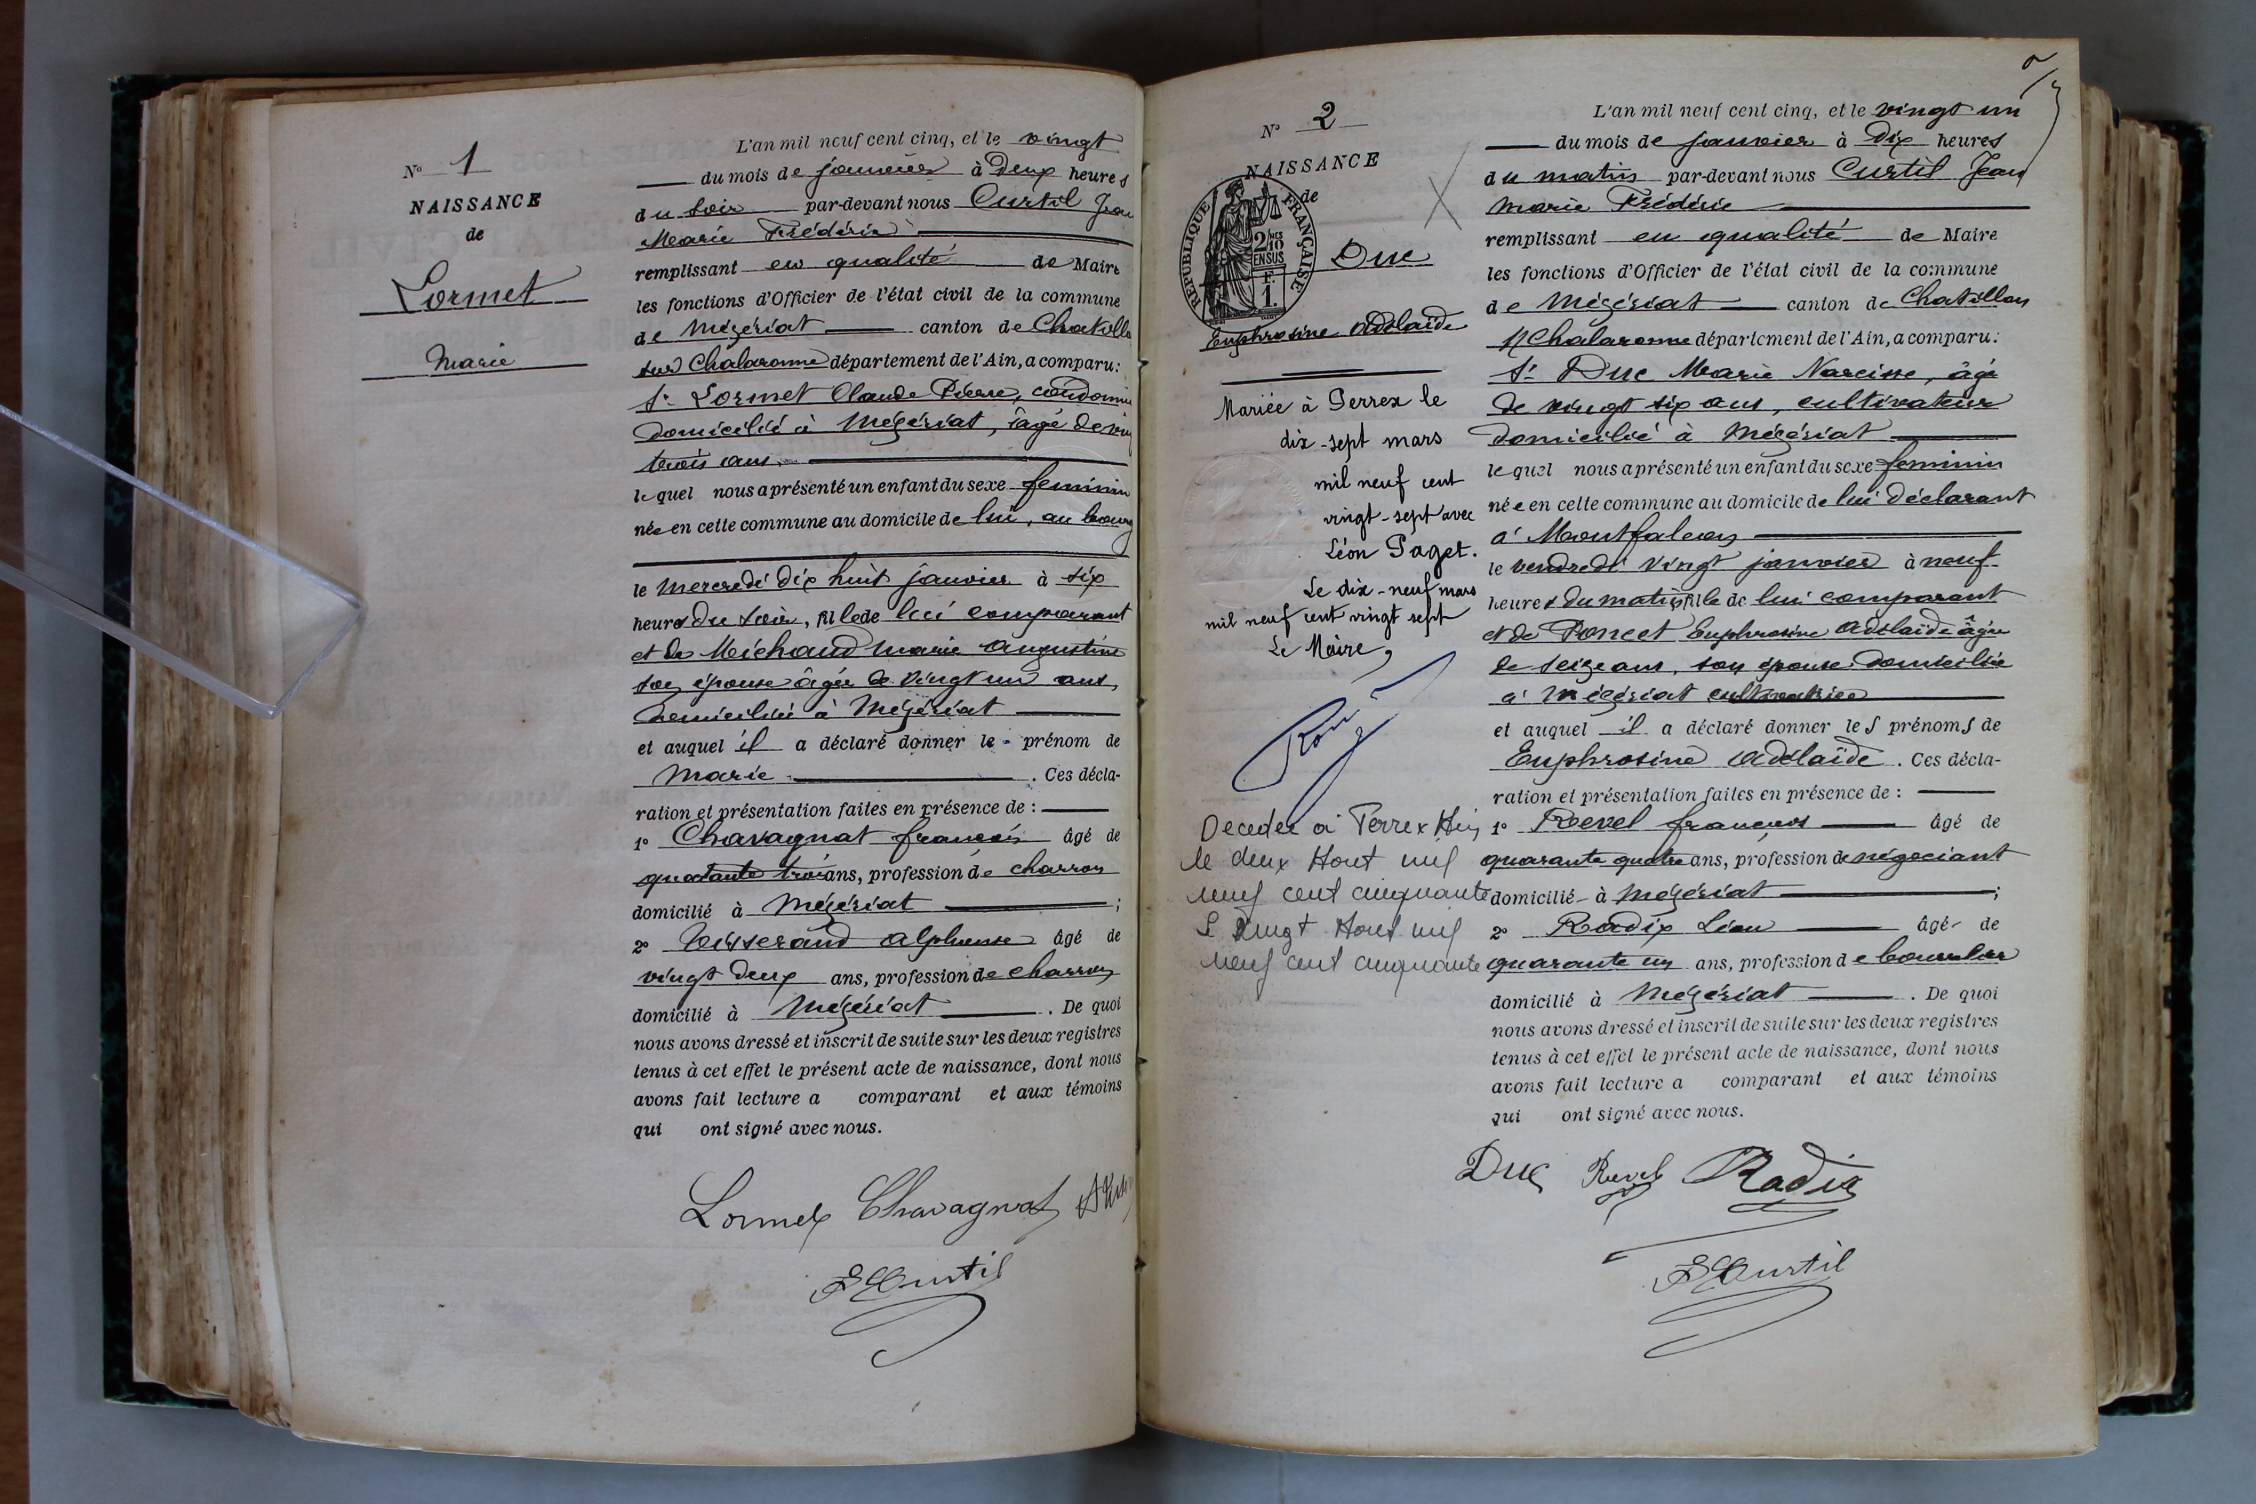 N° 1
NAISSANCE
de
Lormet
Marie
L'an mil neuf cent cinq, et le vingt
du mois de janvier à Deux heures
du soir par-devant nous Curtil Jean
Marie Frédéric
remplissant en qualité de Maire
les fonctions d'Officier de l'état civil de la commune
de Mézériat canton de Chatillon
sur Chalaronne département de l'Ain, a comparu :
Sr Lormet Claude Pierre,
domicilié à Mézériat, âgé de
trois ans.
lequel nous a présenté un enfant du sexe feminin
née en cette commune au domicile de lui, au bourg
le Mercredi dix huit janvier à six
heures du soir, fille de lui comparant
et de Michaud Marie Augustine
son épouse âgée de vingt un ans,
domiciliée à Mézériat
et auquel il a déclaré donner le prénom de
Marie . Ces décla-
ration et présentation faites en présence de :
1° Chavagnat françois âgé de
quatante trois ans, profession de charron
domicilié à Mézériat ;
2° Tisserand Alphonse âgé de
vingt deux ans, profession de charron
domicilié à Mézériat . De quoi
nous avons dressé et inscrit de suite sur les deux registres
tenus à cet effet le présent acte de naissance, dont nous
avons fait lecture a comparant et aux témoins
qui ont signé avec nous.
Lormet Chavagnat
F Curtil
N° 2
NAISSANCE
de
RÉPUBLIQUE FRANÇAISE
2/10 EN SUS
F.
1.
Duc
Euphrosine Adélaïde
Mariée à Perrex le
dix-sept mars
mil neuf cent
vingt-sept avec
Léon Paget.
Le dix-neuf mars
mil neuf cent vingt sept
Le Maire,
Decedee à Perrex Ain
le deux Aout mil
neuf cent cinquante
le vingt Aout mil
neuf cent cinquante
L'an mil neuf cent cinq, et le vingt un
du mois de janvier à Dix heures
du matin par-devant nous Curtil Jean
Marie Frédéric
remplissant en qualité de Maire
les fonctions d'Officier de l'état civil de la commune
de Mézériat canton de Chatillon
s/ Chalaronne département de l'Ain, a comparu :
Sr Duc Marie Narcisse, âgé
de vingt six ans, cultivateur
domicilié à Mézériat
lequel nous a présenté un enfant du sexe feminin
née en cette commune au domicile de lui déclarant
à Montfalcon
le vendredi vingt janvier à neuf
heures du matin fille de lui comparant
et de Poncet Euphrosine Adélaïde âgée
de seize ans, son épouse, domiciliée
à Mézériat cultivatrice
et auquel il a déclaré donner les prénoms de
Euphrosine Adélaïde . Ces décla-
ration et présentation faites en présence de :
1° Revel françois âgé de
quarante quatre ans, profession de négociant
domicilié à Mézériat ;
2° Radix Léon âgé de
quarante un ans, profession de bourrelier
domicilié à Mézériat . De quoi
nous avons dressé et inscrit de suite sur les deux registres
tenus à cet effet le présent acte de naissance, dont nous
avons fait lecture a comparant et aux témoins
qui ont signé avec nous.
Duc Revel Radix
F Curtil